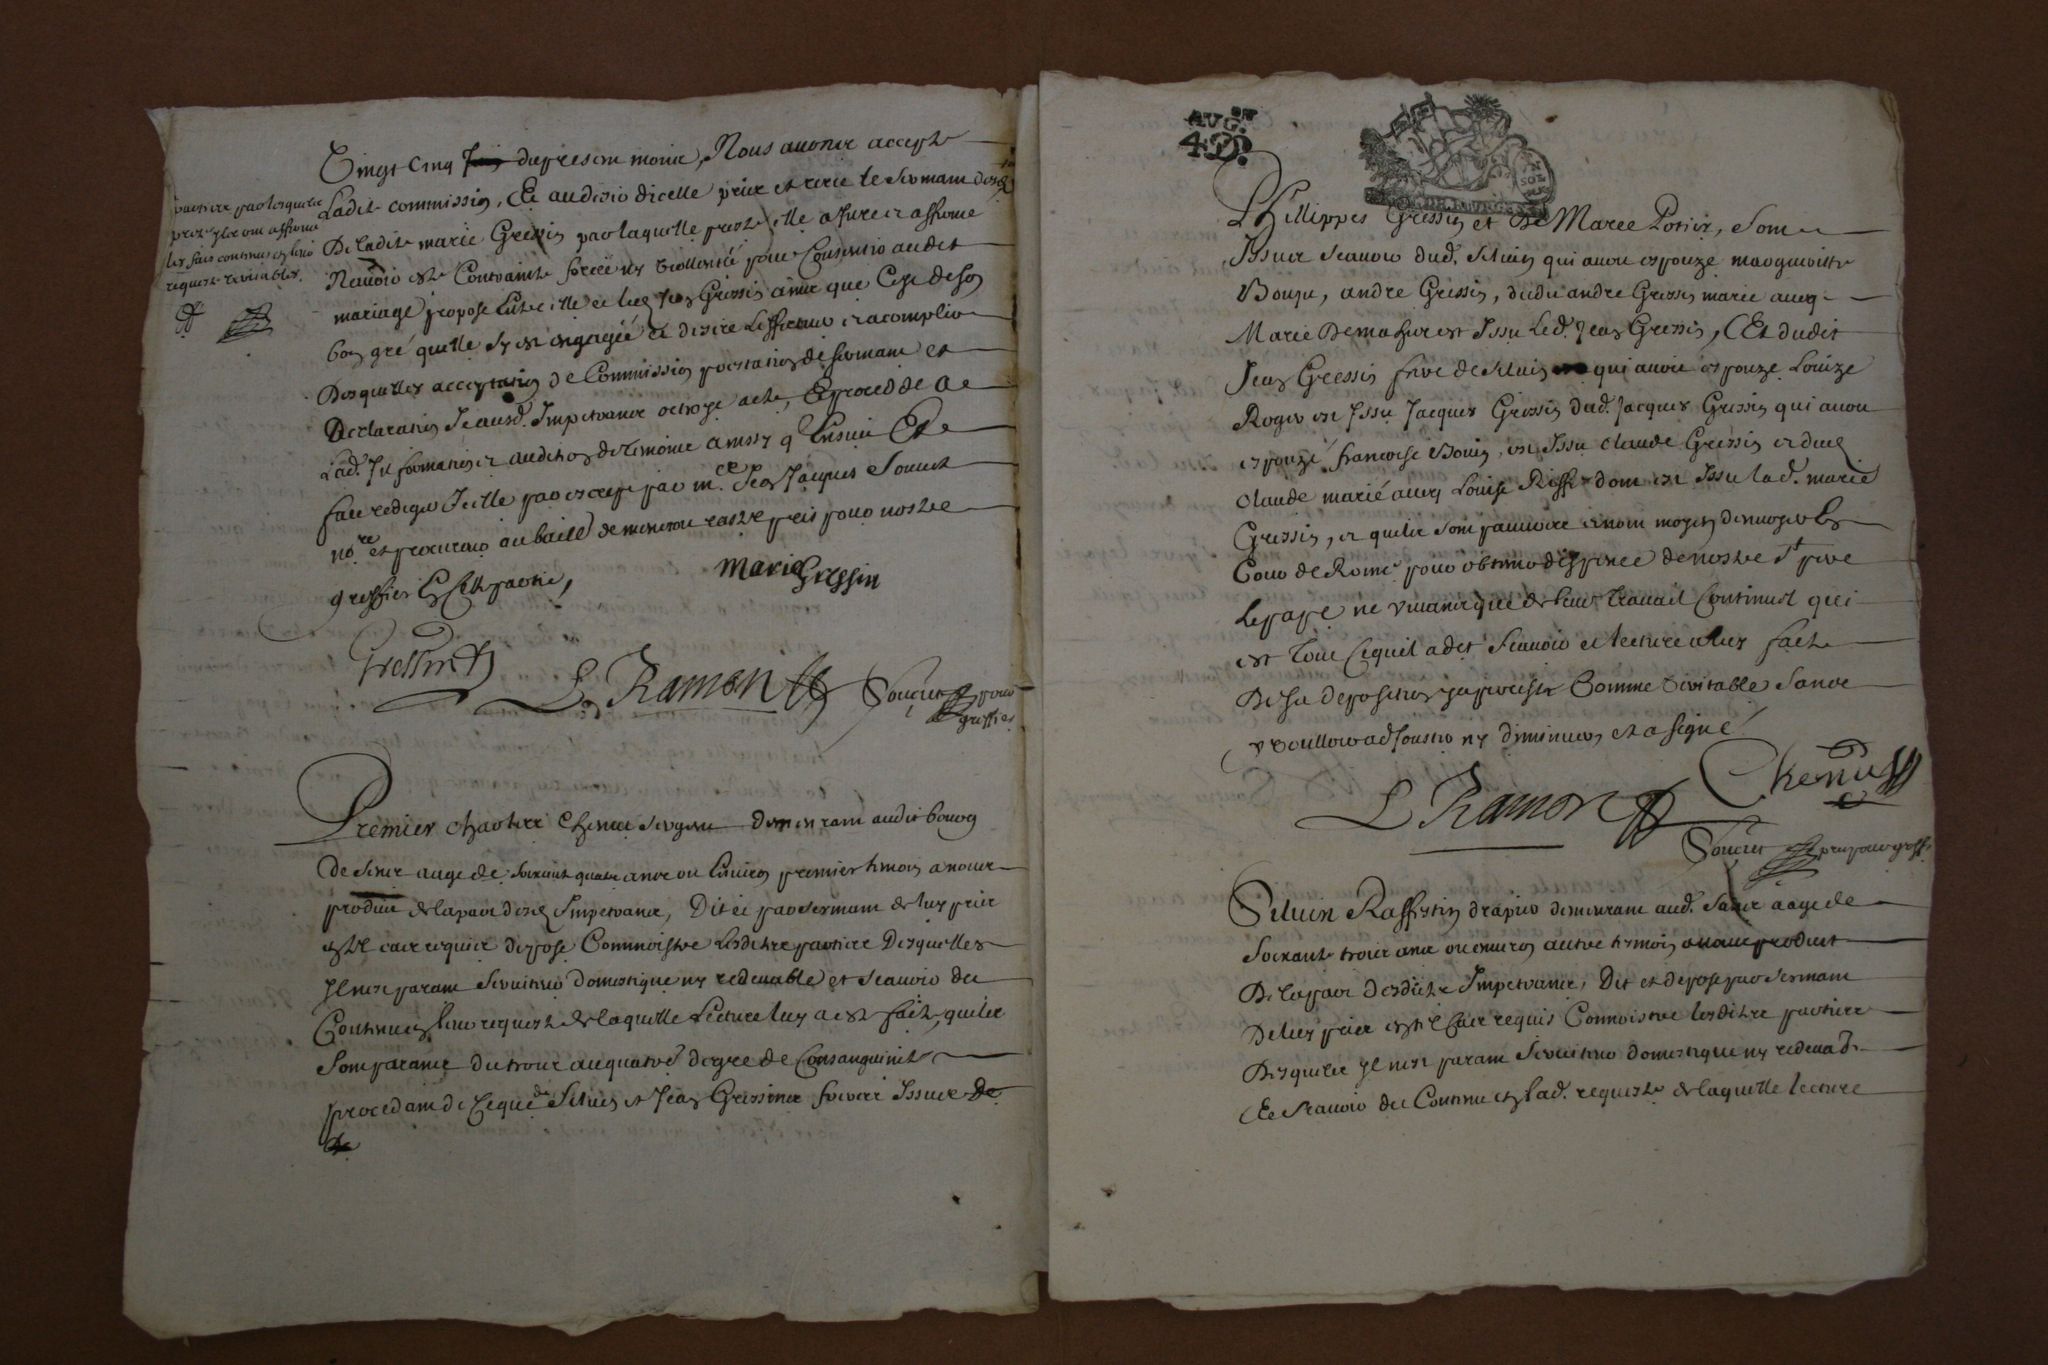 Vingt cinq du present moire, Nous avons accepté
Ladite commission, Et au desir d'icelle pris et receu le sermant desd
De ladite marie Gressin par laquelle elle assure et affirme
N'avoir esté Contrainte forcée ny viollentée pour Consentir audit
mariage proposé Entre elle et led Jean Gressin ains que C'est de son
bon gré quelle sy est engagée et desire L'effectuer et acomplir
Desquelles acceptation de Commission prestation de sermant et
Declaration Jceansd. Impetrants octroyé acte, Et proceddé a
Lad. Information et audition de temoins ainssy q Ensuit Et
fait rediger Icelle par escript par me. Jean Jacques Soucet
nore. et procureur au baill. de menetou pris pour nostre
greffier En cette partie,
parties par lesquelles
ont affirmé
les fais contenus en leur
requeste veritables.
Marie Gressin
Gressin
L Ramon
Soucet pour
greffier
Premier Chenu sergent demeurant audit bourg
De Sens aagé de soixante quatre ans ou Environ premier temoin a nous
produit de la part desd Impetrants, Dit et par sermant de luy pris
au cas requis depose Connoistre Lesdites parties Desquelles
Il n'est parant serviteur Domestique ny redevable et scavoir du
Contenu en leur requeste de laquelle Lecture luy a esté faite, quils
Sont parants du trois au quatre degré de Consanguinité
procedant de Ceque Silvin et Jean Gressins freres Issues De
AUG.on
4 D.
Phillippes Gressin et De Marie Potier, Sont
Issues Scavoir dud. Silvin qui avoit espouzé margueritte
Bouru, andré Gressin, dudit andré Gressin marié avecq
Marie Demahure est Issu Led. Jean Gressin, Et dudit
Jean Gressin frere de Silvin qui avoit espouzé Louize
Roger est Issu Jacques Gressin dud. Jacques Gressin qui avoit
espouzé francoise Bouin, est Issu Claude Gressin et dud
Claude marié avecq Louise Riffé dont est Issue lad. marie
Gressin, et quils sont pauvres et nont moyen d'envoyer En
Cour de Rome pour obtenir dispence de nostre St pere
Le pape ne vivants que de leur travail Continuel qui
est tout Cequil a dit Scavoir et lecture a luy faite
De sa deposition y a persisté Comme veritable Sans
y voulloir adjouster ny diminuer et a signé
Chenu
L Ramon
Soucet pris pour greff.
Silvin Raffestin drapier demeurant aud. Sens aagé de
Soixante trois ans ou environ autre temoin a nous produit
De la part desdits Impetrants, Dit et depose par Sermant
De luy pris au cas requis Connoistre lesdites parties
Desquels Il n'est parant Serviteur domestique ny redevab.
Et Scavoir du Contenu en lad. requeste de laquelle lecture